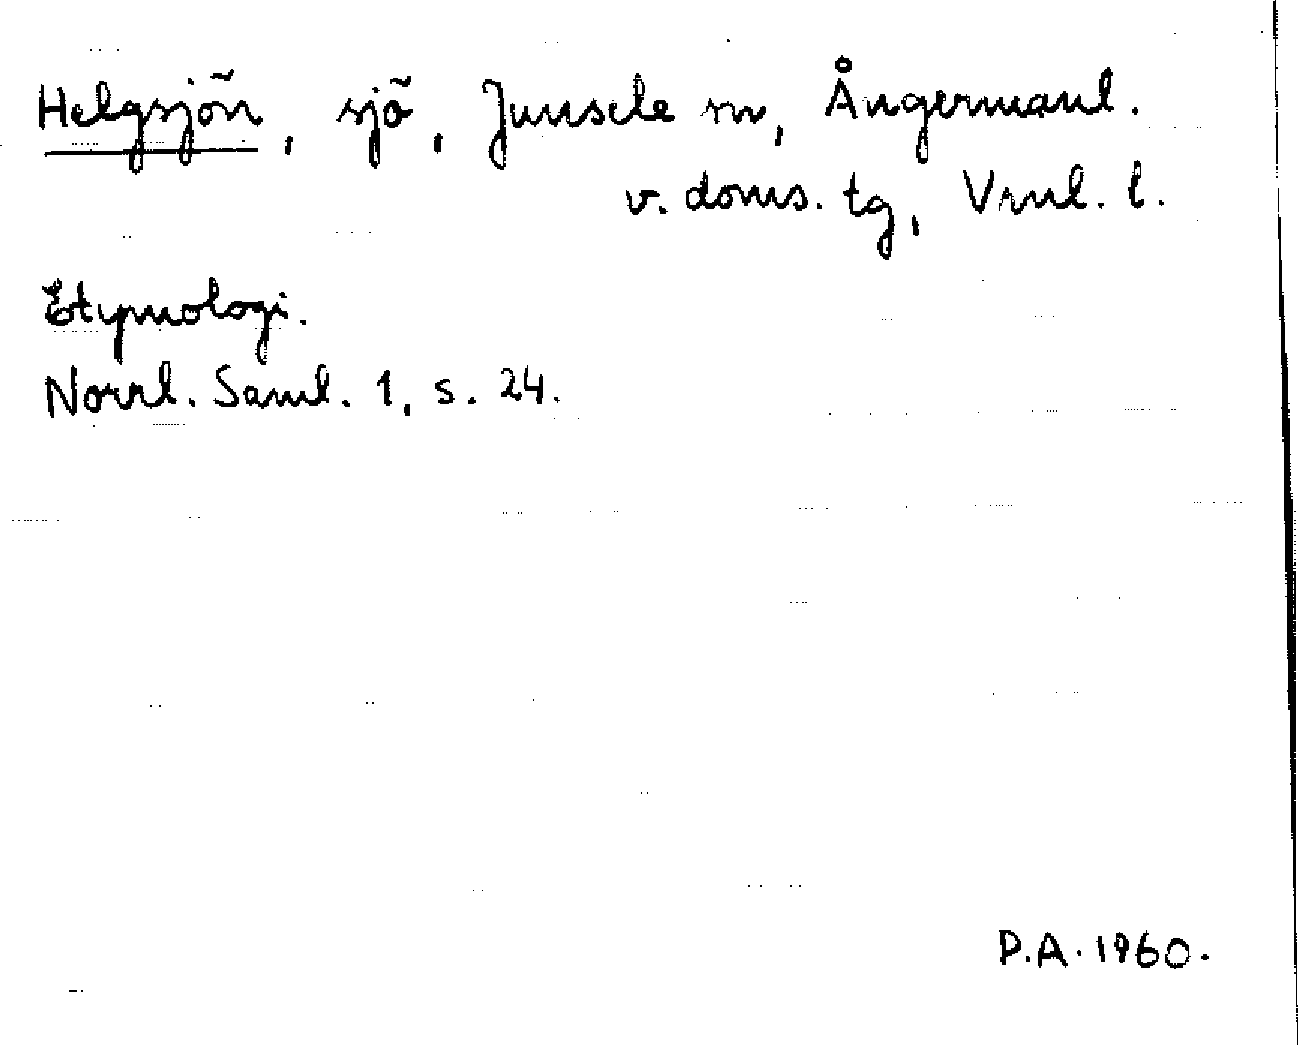 Helgsjön, sjö, Junsele sn, Ångermanl.
v. doms. tg, Vrnl. l.
Etymologi.
Norrl. Saml. 1, s. 24.
P.A. 1960.